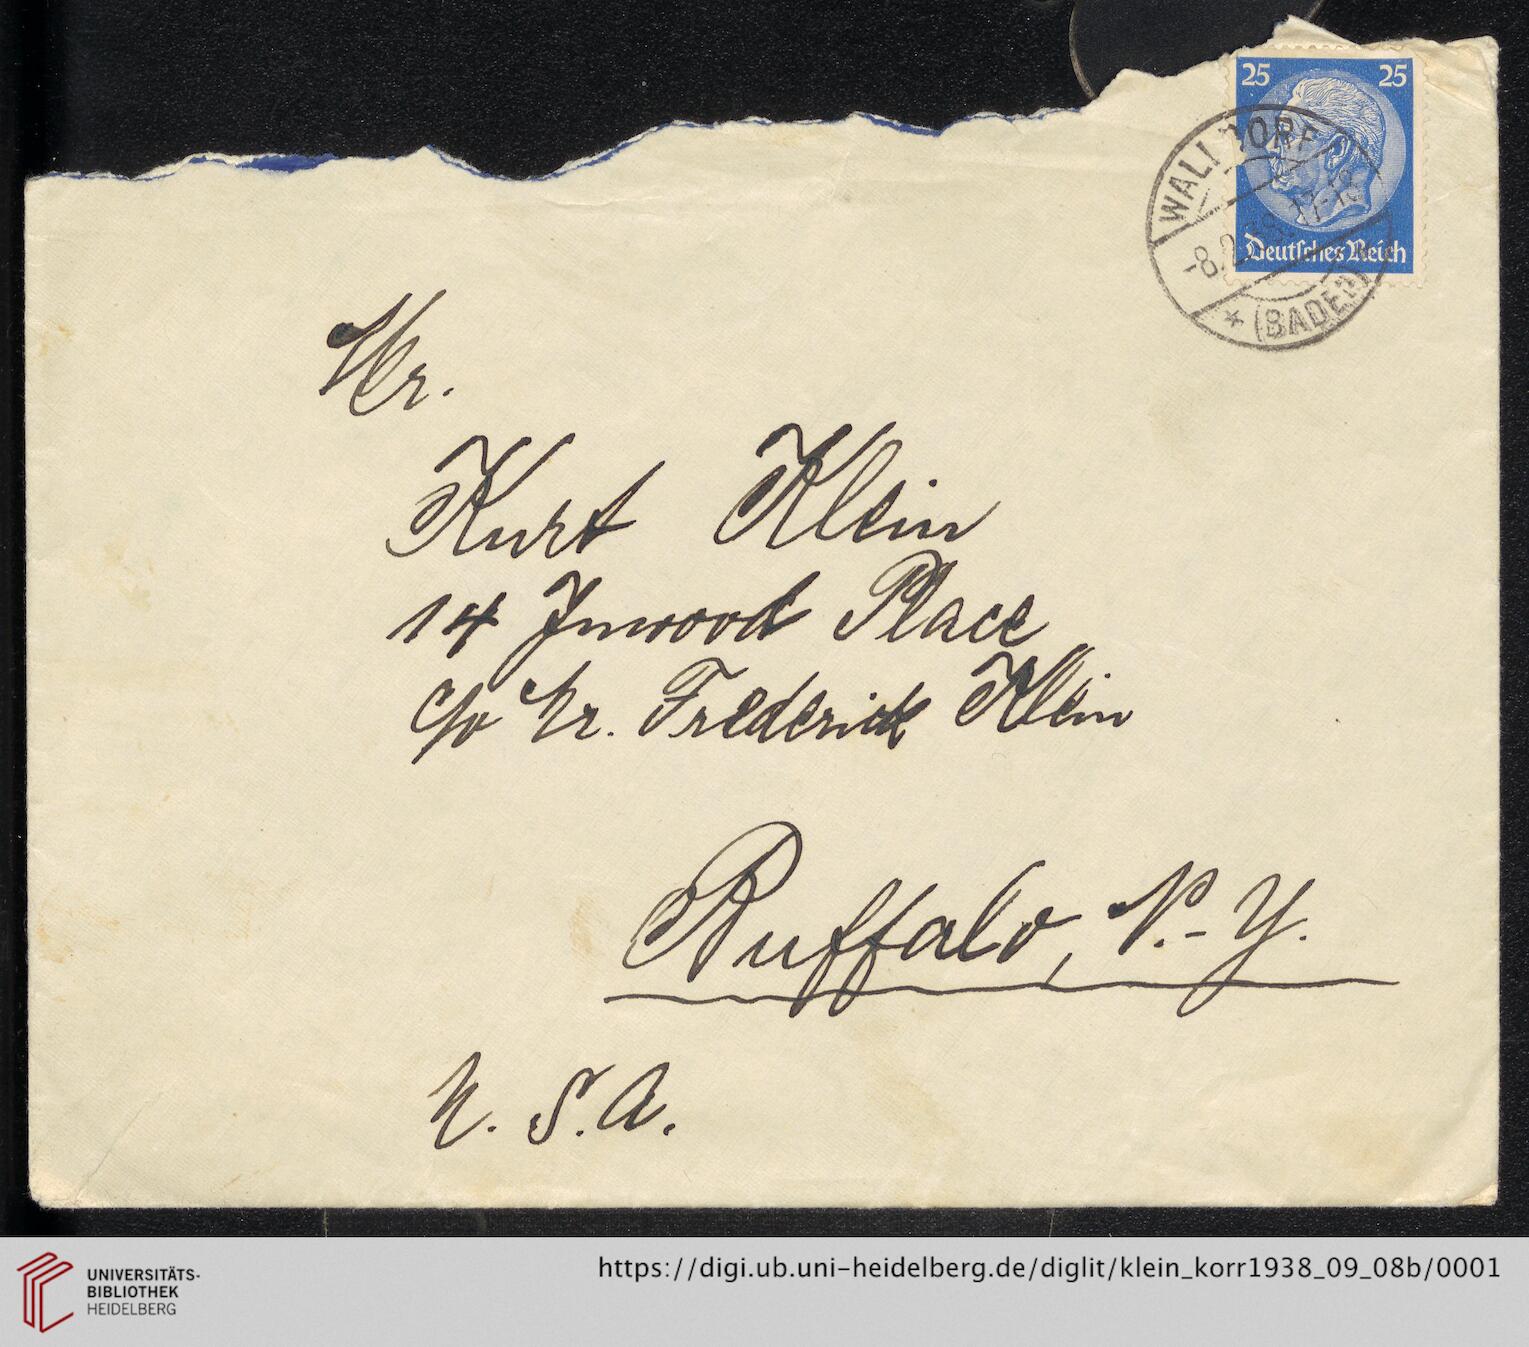 25 25
WALLDORF
-8.2.39.17-18
Deutsches Reich
* (BADEN)
Mr.
Kurt Klein
14 Inwood Place
c/o Mr. Frederick Klein
Buffalo, N.-Y.
U.S.A.
UNIVERSITÄTS-
BIBLIOTHEK
HEIDELBERG
https://digi.ub.uni-heidelberg.de/diglit/klein_korr1938_09_08b/0001